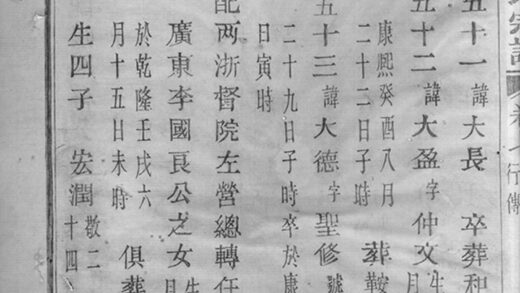 宗譜 卷七 行傳
五十一諱大長 卒葬和
五十二諱大盈字仲文生月
康熙癸酉八月
二十二日子時 葬鞍
五十三諱大德字聖修號
二十九日子時卒於康
日寅時
配两浙督院左營總轉任
廣東李國良公之女生月
於乾隆壬戌六
月十五日未時 俱葬
生四子 宏潤敬二
十四